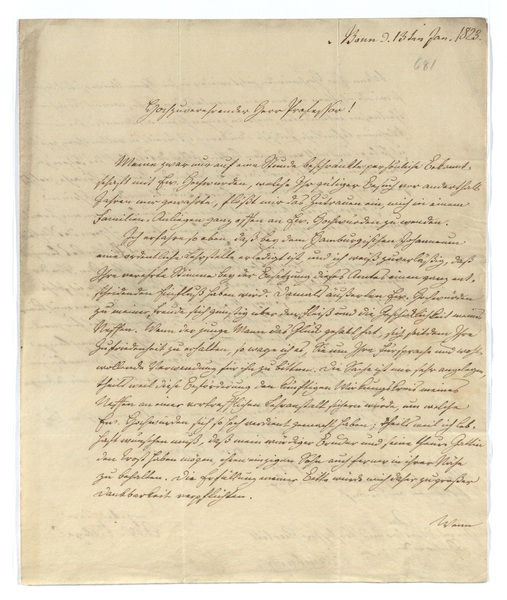 Bonn d. 13ten Jan. 1823.
681
Hochzuverehrender Herr Professor!
Meine zwar nur auf eine Stunde beschränkte persönliche Bekannt-
schaft mit Ew. Hochwürden, welche Ihr gütiger Besuch vor anderthalb
Jahren mir gewährte, flößt mir das Zutrauen ein, mich in einem
Familien-Anliegen ganz offen an Ew. Hochwürden zu wenden.
Ich erfahre so eben, daß bey dem Hamburgischen Johanneum
eine ordentliche Lehrstelle erledigt ist und ich weiß zuverlässig, daß
Ihre verehrte Stimme bey der Besetzung dieses Amtes einen ganz ent-
scheidenden Einfluß haben wird. Damals äußerten Ew. Hochwürden
zu meiner Freude sich günstig über den Fleiß und die Geschicklichkeit meines
Neffen. Wenn der junge Mann das Glück gehabt hat, sich seitdem Ihre
Zufriedenheit zu erhalten, so wage ich es, Sie um Ihre Fürsprache und wohl-
wollende Verwendung für ihn zu bitten. Die Sache ist mir sehr angelegen,
theils weil diese Beförderung den künftigen Wirkungskreis meines
Neffen an einer vortrefflichen Lehranstalt sichern würde, um welche
Ew. Hochwürden sich so hoch verdient gemacht haben; theils weil ich leb-
haft wünschen muß, daß mein würdiger Bruder und seine theure Gattin
den Trost haben mögen, ihren einzigen Sohn auch ferner in ihrer Nähe
zu behalten. Die Erfüllung meiner Bitte würde mich daher zu großer
Dankbarkeit verpflichten.
Wenn